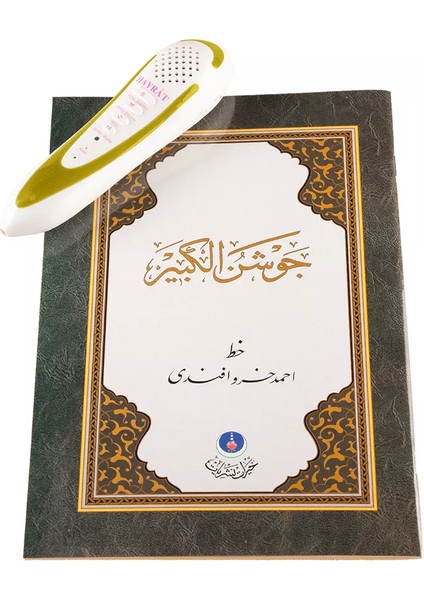 HAYRÂT
جَوْشَنُ الْكَبِيرْ
خط
احمد خسرو افندى
خيرات نشريات